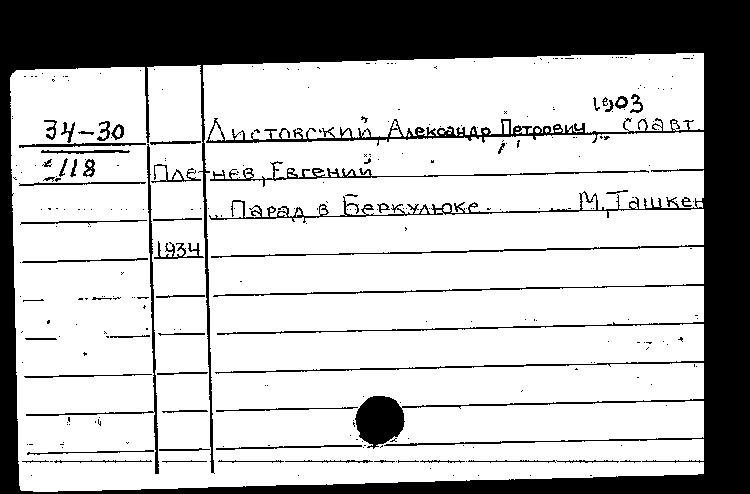 1903
34-30 Листовский, Александр Петрович, соавт.
118 Плетнев, Евгений
Парад в Беркулюке. М, Ташкен
1934